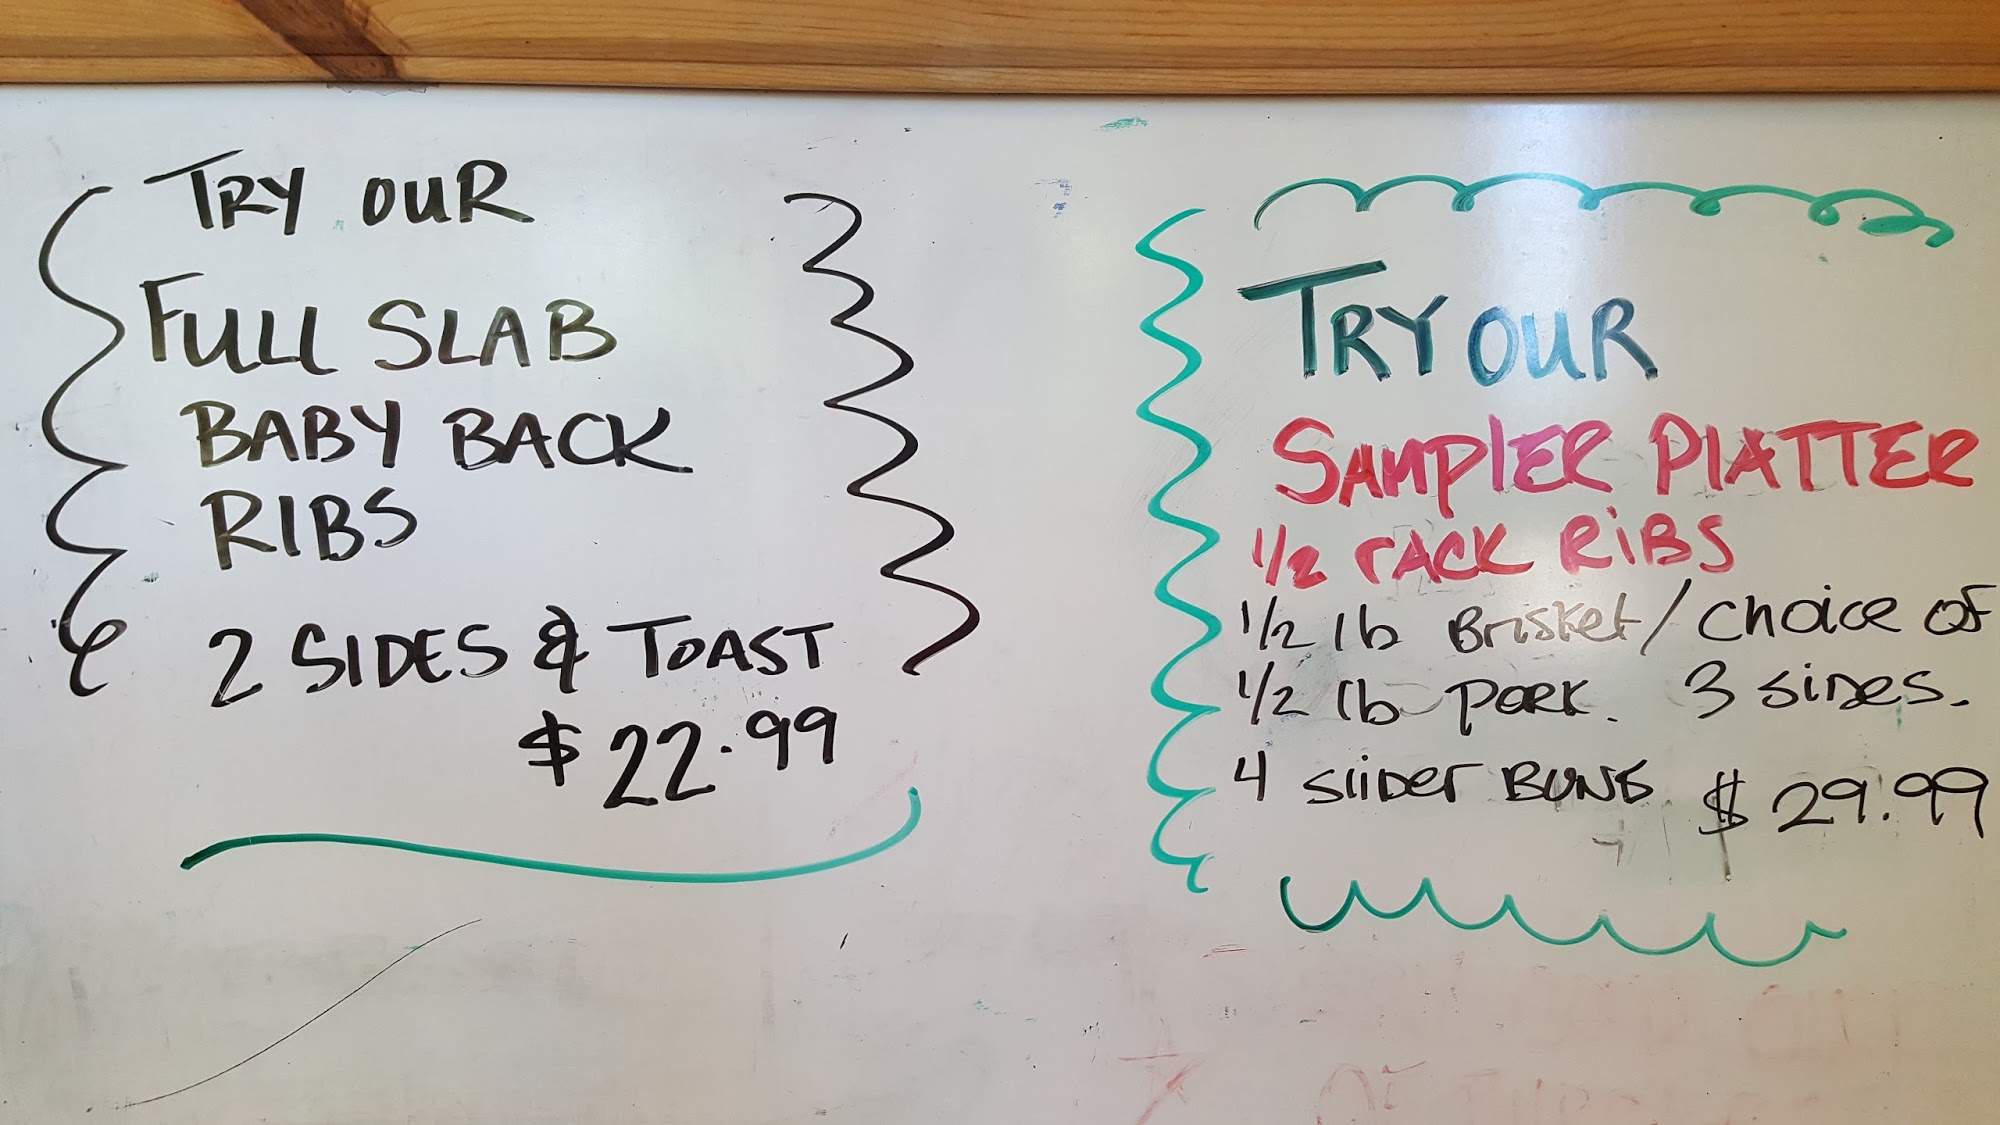 TRY OUR
FULL SLAB
BABY BACK
RIBS
2 SIDES & TOAST
$22.99
TRY OUR
SAMPlER PlATTER
1/2 rACK RiBS
1/2 lb Brisket / Choice OF
1/2 lb pork. 3 sides.
4 slider BUNS $29.99